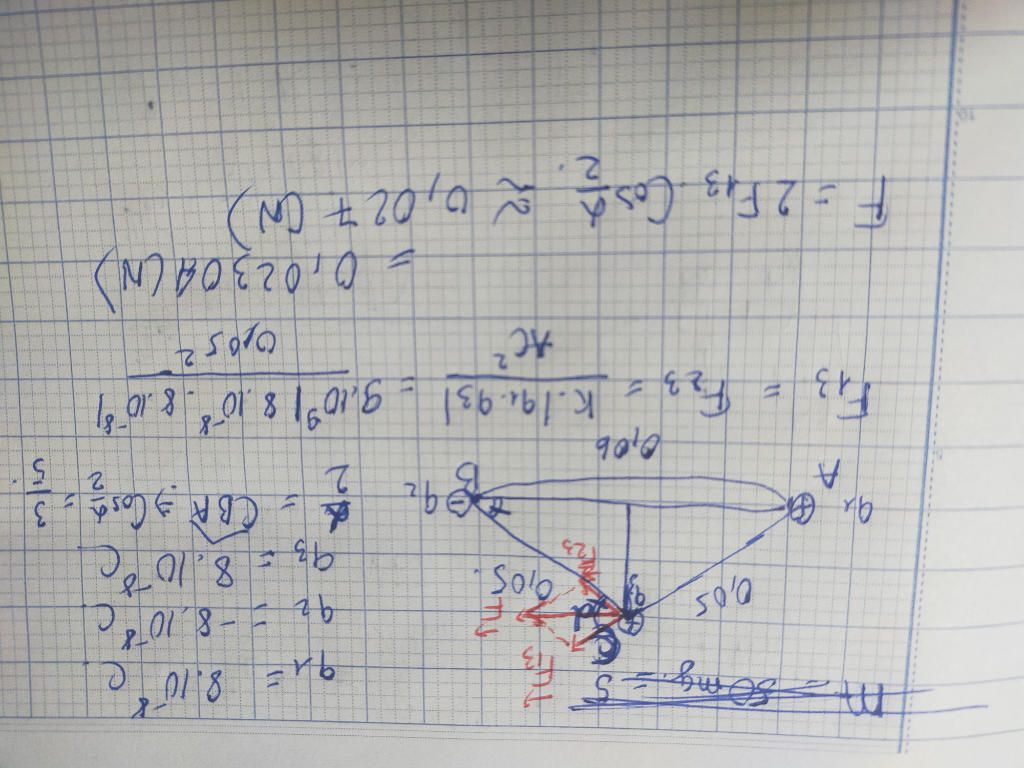 m = 50 mg = 5
q₁ = 8.10⁻⁸ C
q₂ = -8.10⁻⁸ C
q₃ = 8.10⁻⁸ C
α/2 = CBA ⇒ Cos α/2 = 3/5
C
F₁₃
F
F₂₃
q₃
α
0,05
0,05
q₁
A
q₂
B
0,06
F₁₃ = F₂₃ = K.|q₁.q₃| / AC² = 9.10⁹ |8.10⁻⁸.8.10⁻⁸| / 0,05²
= 0,02304 (N)
F = 2F₁₃.Cos α/2 ≈ 0,027 (N)